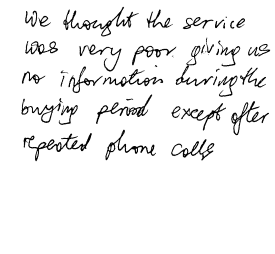 We thought the service
was very poor. giving us
no information during the
buying period except after
repeated phone calls